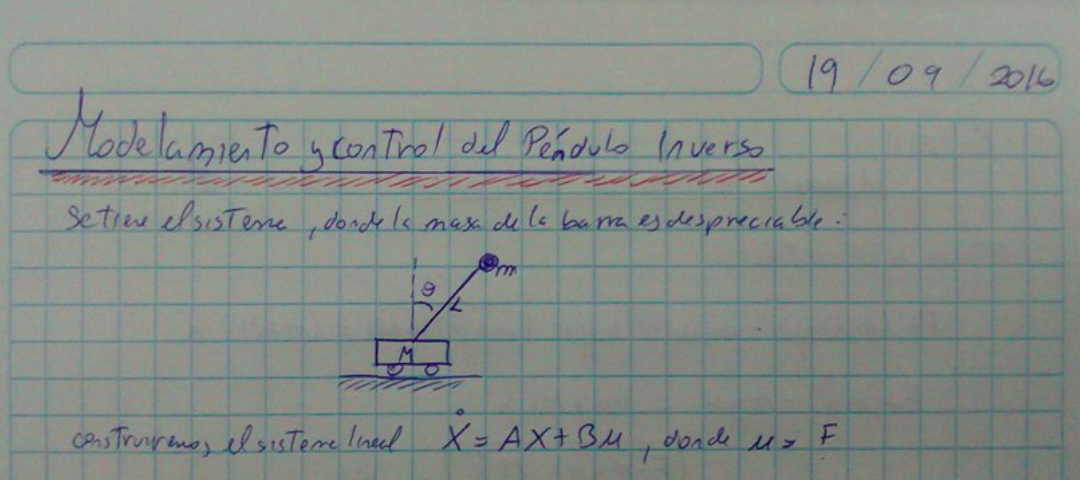 19 / 09 / 2016
Modelamiento y control del Péndulo Inverso
Se tiene el sistema, donde la masa de la barra es despreciable:
m
θ
L
M
construiremos el sistema lineal Ẋ = AX + Bu, donde u = F